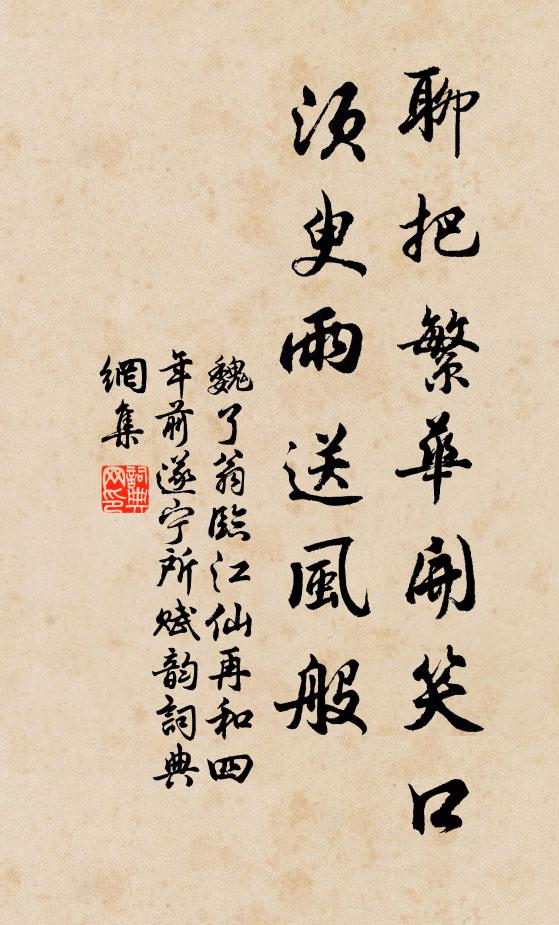 聊把繁華開笑口
須臾雨送風般
魏了翁臨江仙再和四
年前遂宁所賦韵詞典
網集
詞典
网印